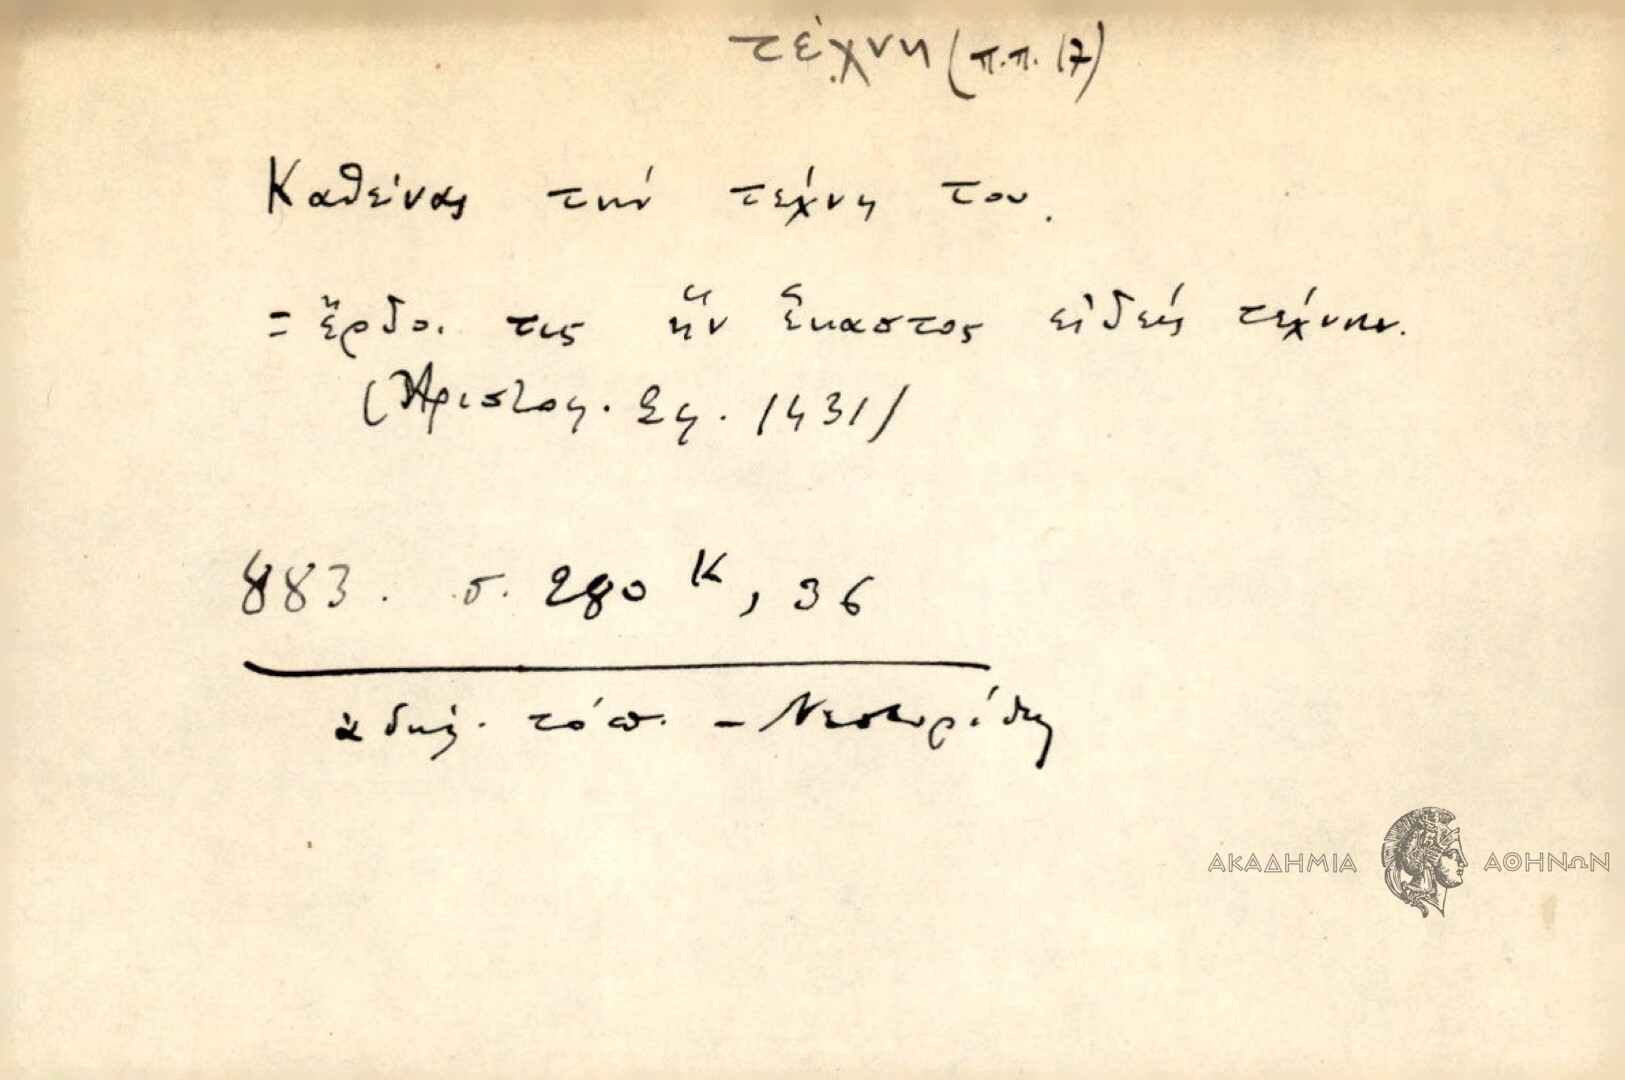 τέχνη (π.π. 17)
Καθείνας την τέχνη του.
= ἔρδοι τις ἣν ἕκαστος εἰδείη τέχνην.
(Ἀριστοφ. Σφ. 1431)
883. σ. 280 Κ, 36
ἀδήλ. τόπ. - Νεστορίδη
ΑΚΑΔΗΜΙΑ ΑΘΗΝΩΝ